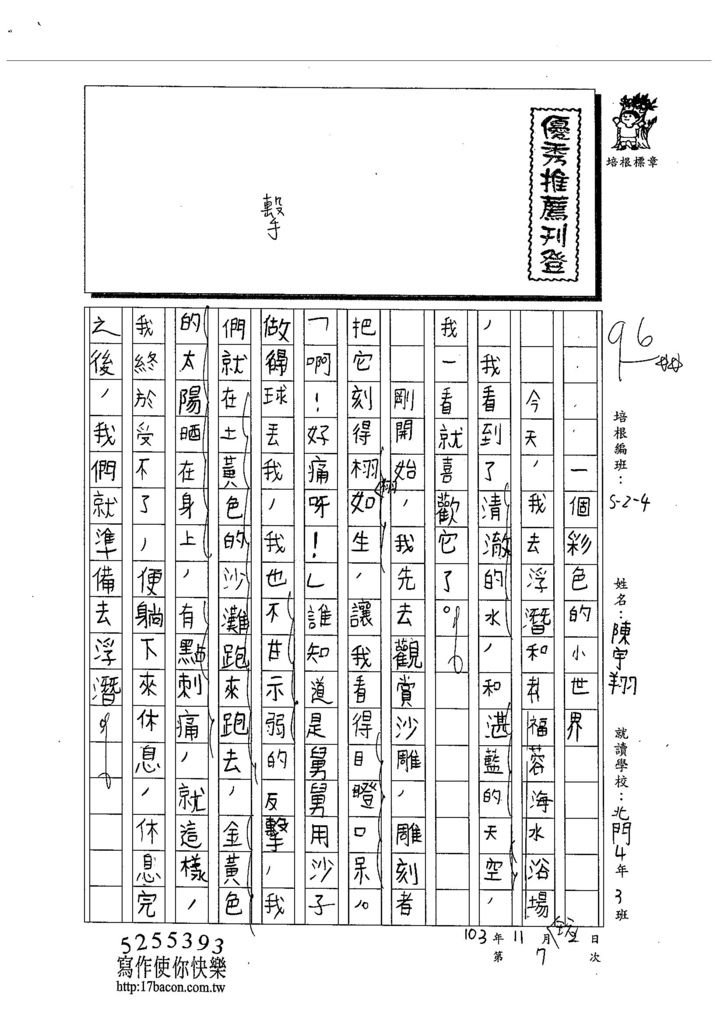 優秀推薦刊登
培根標章
擊
96
培根編班：5-2-4
姓名：陳宇翔
就讀學校：北門4年3班
一個彩色的小世界
今天，我去浮潛和去福蓉海水浴場
，我看到了清澈的水，和湛藍的天空，
我一看就喜歡它了。
剛開始，我先去觀賞沙雕，雕刻者
把它刻得栩如生，讓我看得目瞪口呆，。
栩
「啊！好痛呀！」誰知道是舅舅用沙子
做得球丟我，我也不甘示弱的反擊，我
們就在土黃色的沙灘跑來跑去，金黃色
的太陽晒在身上，有點刺痛，就這樣，
我終於受不了，便躺下來休息，休息完
之後，我們就準備去浮潛。
103年11月 日
第7次
5255393
寫作使你快樂
http:17bacon.com.tw